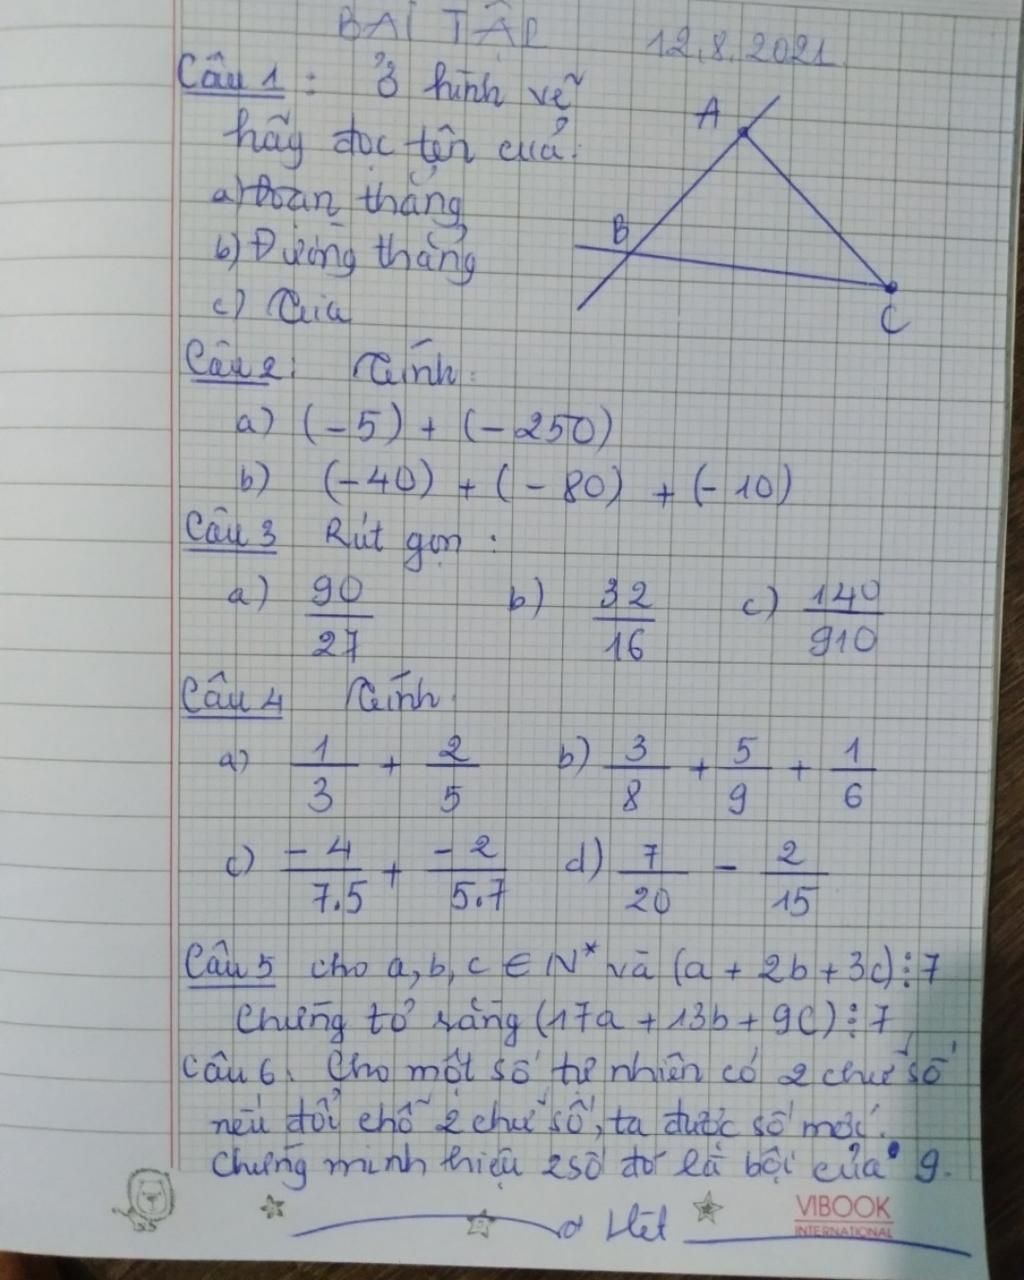 BÀI TẬP 12.8.2021
Câu 1: Ở hình vẽ
hãy đọc tên của:
a) Đoạn thẳng
b) Đường thẳng
c) Tia
A
B
C
Câu 2: Tính:
a) (-5) + (-250)
b) (-40) + (-80) + (-10)
Câu 3 Rút gọn:
a) 90/27 b) 32/16 c) 140/910
Câu 4 Tính.
a) 1/3 + 2/5 b) 3/8 + 5/9 + 1/6
c) -4/7.5 + -2/5.7 d) 7/20 - 2/15
Câu 5 cho a, b, c ∈ N* và (a + 2b + 3c) ⋮ 7
Chứng tỏ rằng (17a + 13b + 9C) ⋮ 7
Câu 6. Cho một số tự nhiên có 2 chữ số
nếu đổi chỗ 2 chữ số, ta được số mới.
Chứng minh hiệu 2 số đó là bội của 9.
Hết
VIBOOK
INTERNATIONAL